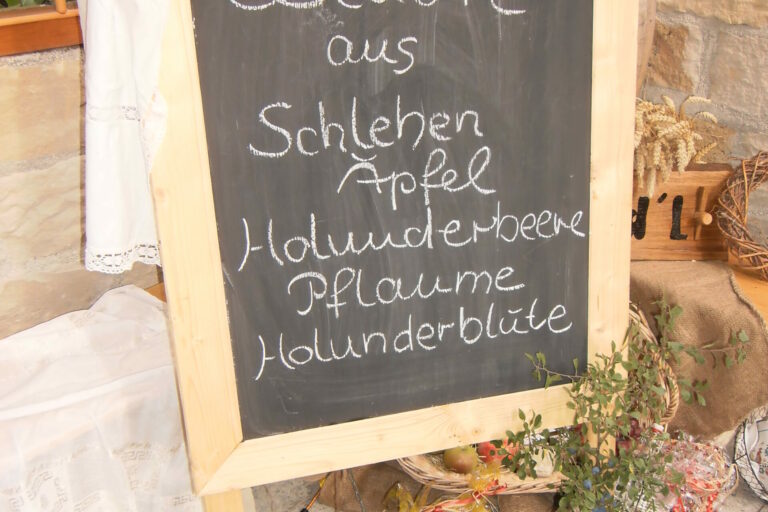 aus
Schlehen
Äpfel
Holunderbeere
Pflaume
Holunderblüte